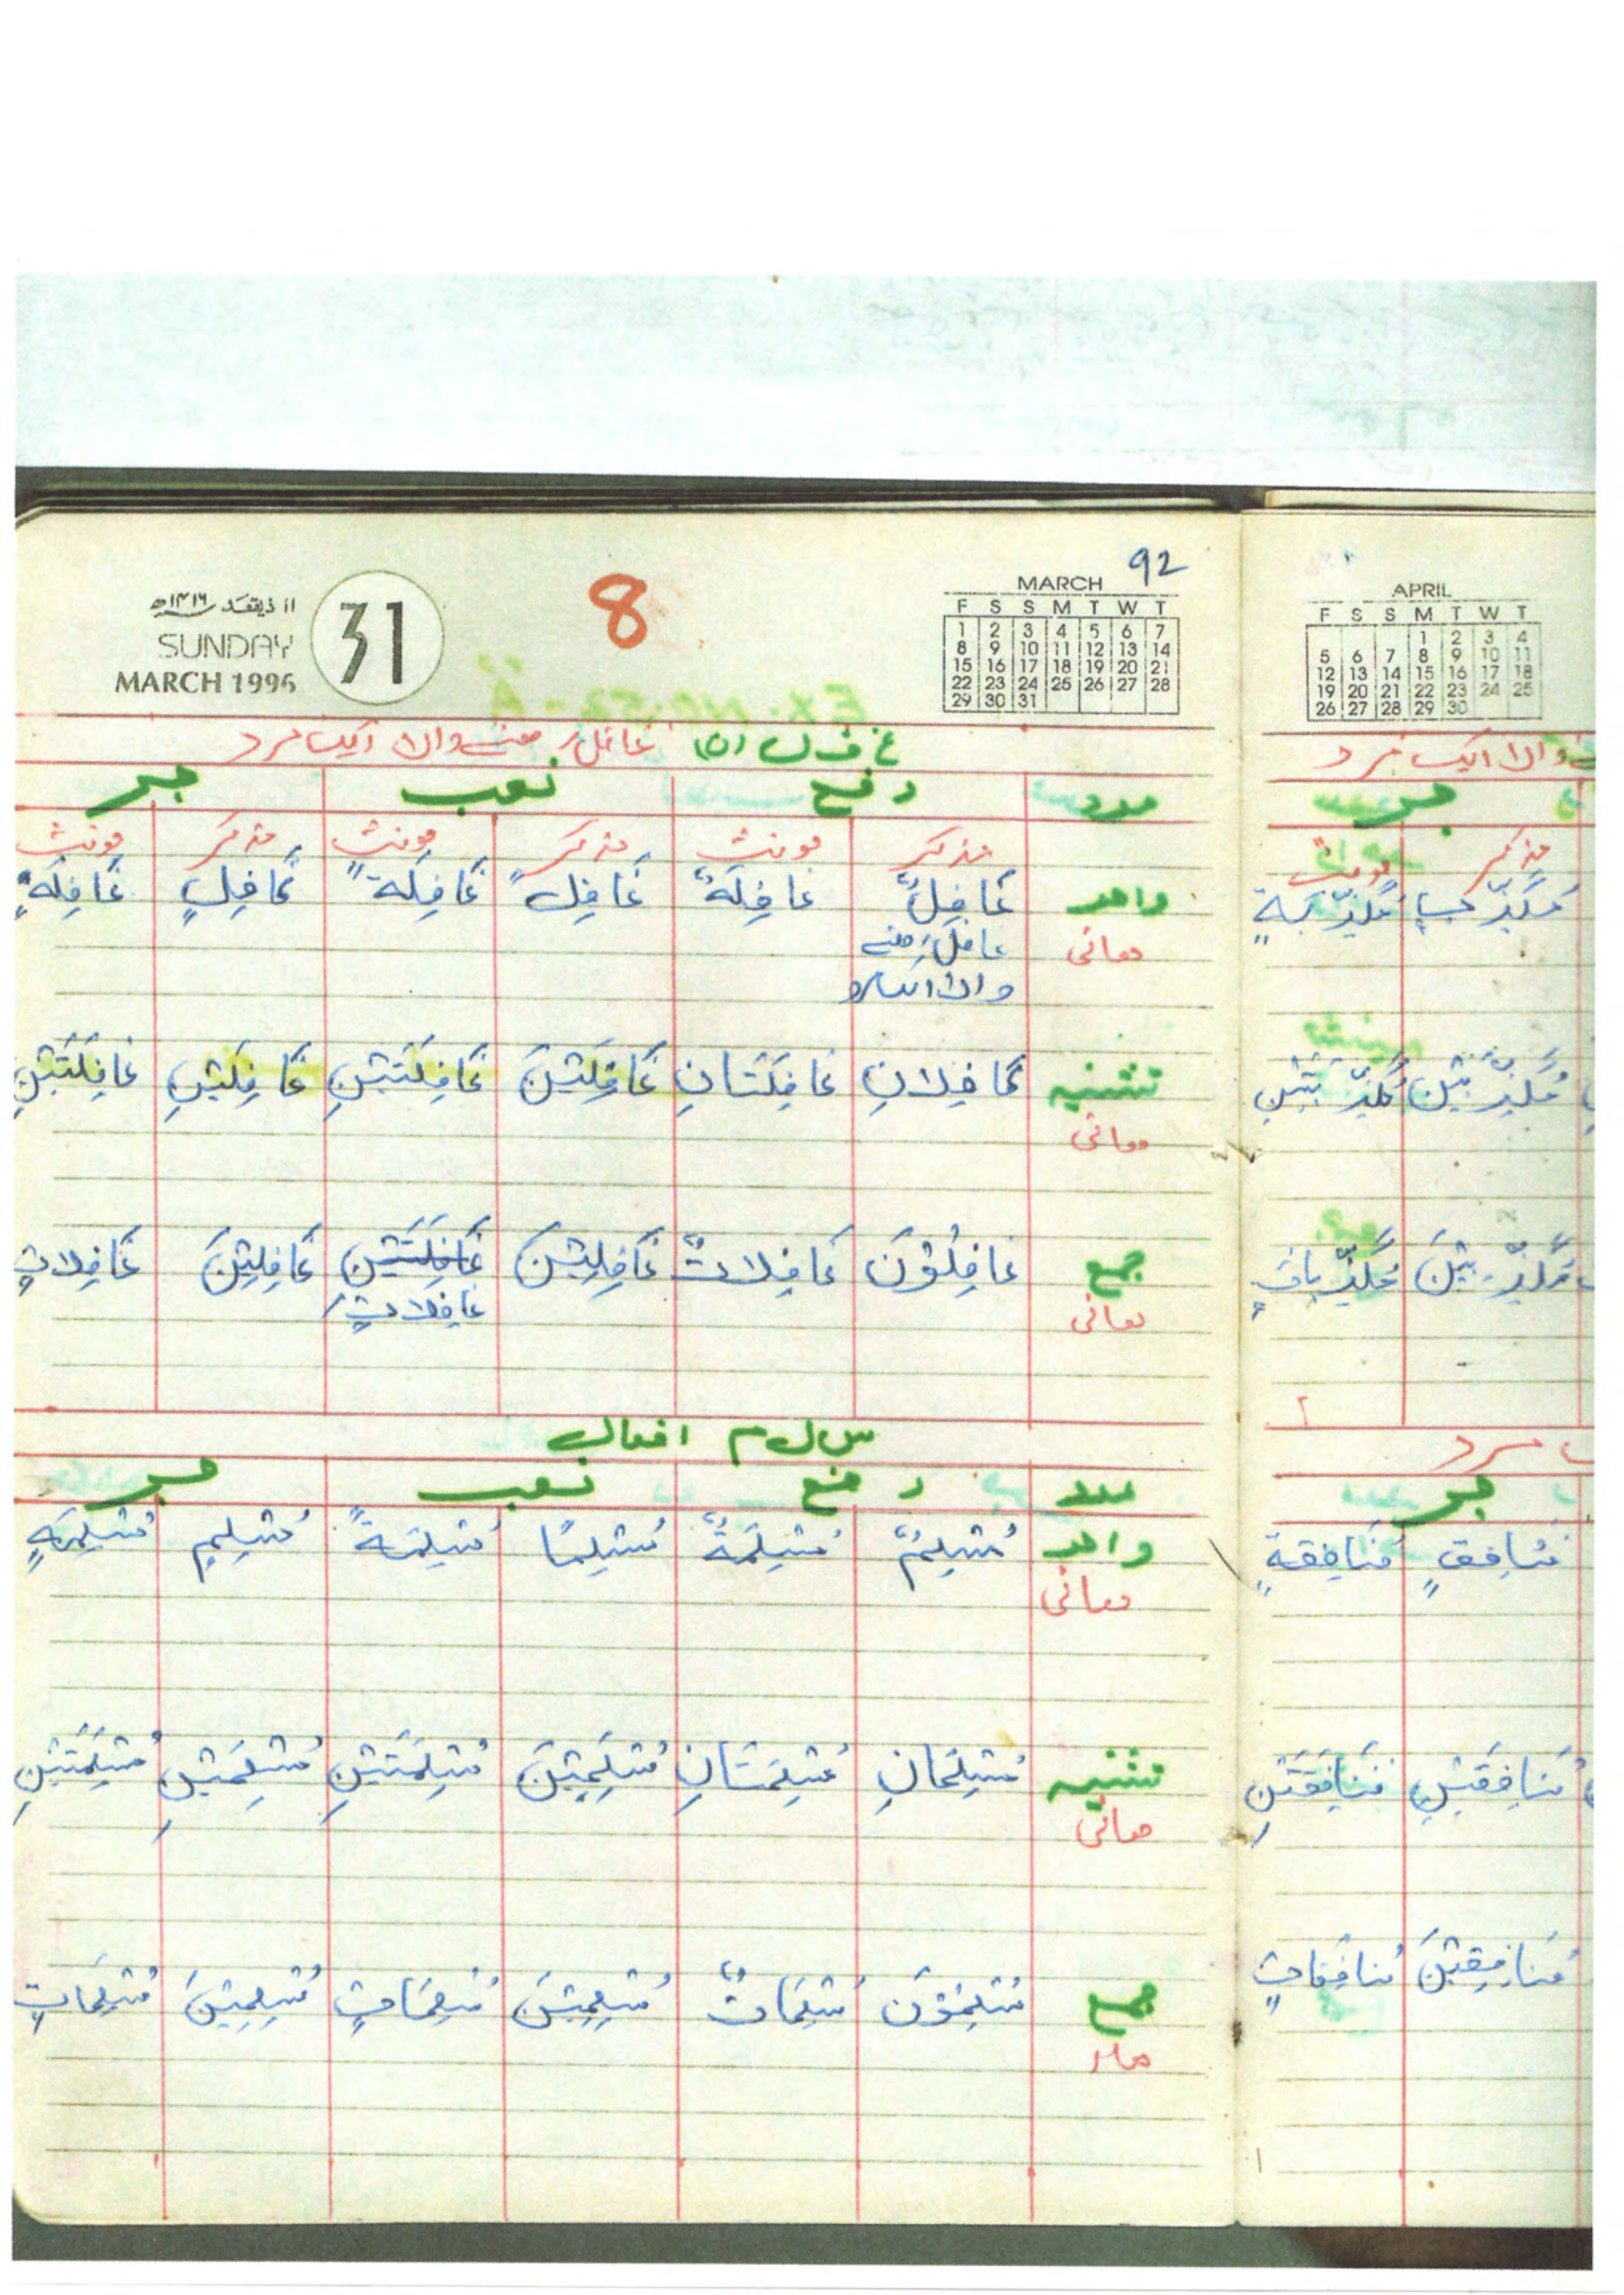 92
۱۱ ذیقعد ۱۴۱۶ھ
SUNDAY
MARCH 1996
31
8
MARCH
F S S M T W T
1 2 3 4 5 6 7
8 9 10 11 12 13 14
15 16 17 18 19 20 21
22 23 24 25 26 27 28
29 30 31
غ ف ل (ن) غافل رھنے والا ایک مرد
عدد رفع نصب جر
مذکر مونث مذکر مونث مذکر مونث
واحد غَافِلٌ غَافِلَةٌ غَافِلً غَافِلَةً غَافِلٍ غَافِلَةٍ
معانی غافل رھنے
والا ایک مرد
تثنیہ غَافِلَانِ غَافِلَتَانِ غَافِلَيْنَ غَافِلَتَيْنِ غَافِلَيْنِ غَافِلَتَيْنِ
معانی
جمع غَافِلُوْنَ غَافِلَاتٌ غَافِلِيْنَ غَافِلَتَيْنِ غَافِلِيْنَ غَافِلَاتٍ
معانی غَافِلَاتٍ
س ل م افعال
عدد رفع نصب جر
واحد مُسْلِمٌ مُسْلِمَةٌ مُسْلِمًا مُسْلِمَةً مُسْلِمٍ مُسْلِمَةٍ
معانی
تثنیہ مُسْلِمَانِ مُسْلِمَتَانِ مُسْلِمَيْنَ مُسْلِمَتَيْنِ مُسْلِمَيْنِ مُسْلِمَتَيْنِ
معانی
جمع مُسْلِمُوْنَ مُسْلِمَاتٌ مُسْلِمِيْنَ مُسْلِمَاتٍ مُسْلِمِيْنَ مُسْلِمَاتٍ
APRIL
F S S M T W T
1 2 3 4
5 6 7 8 9 10 11
12 13 14 15 16 17 18
19 20 21 22 23 24 25
26 27 28 29 30
والا ایک مرد
جر
مذکر مونث
مُكَذِّبٍ مُكَذِّبَةٍ
مُكَذِّبَيْنِ مُكَذِّبَتَيْنِ
مُكَذِّبِيْنَ مُكَذِّبَاتٍ
مرد
جر
مُنَافِقٍ مُنَافِقَةٍ
مُنَافِقَيْنِ مُنَافِقَتَيْنِ
مُنَافِقِيْنَ مُنَافِقَاتٍ